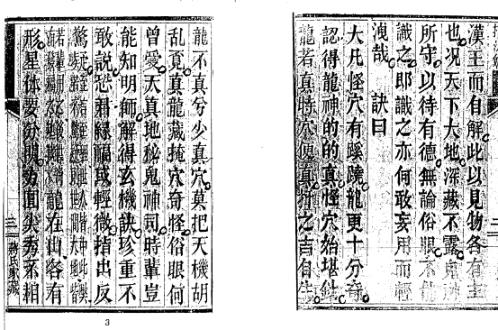 漢王而自解此以見物各有主
也況天下大地深藏不露鬼神
所守以待有德無論俗眼不能
識之即識之亦何敢妄用而輕
洩哉 訣曰
大凡怪穴有蹊蹺龍更十分奇
認得龍神的的真怪穴始堪針
龍若真時穴便真葬之吉自生
二
龍不真兮少真穴莫把天機胡
亂覓真龍藏掩穴奇怪俗眼何
曾愛天真地秘鬼神司時輩豈
能知明師解得玄機訣珍重不
敢說恐君緣福或輕微指出反
驚疑
龍在山谷有
形星体要分開方圓尖秀不相
三
蔣氏家藏
3